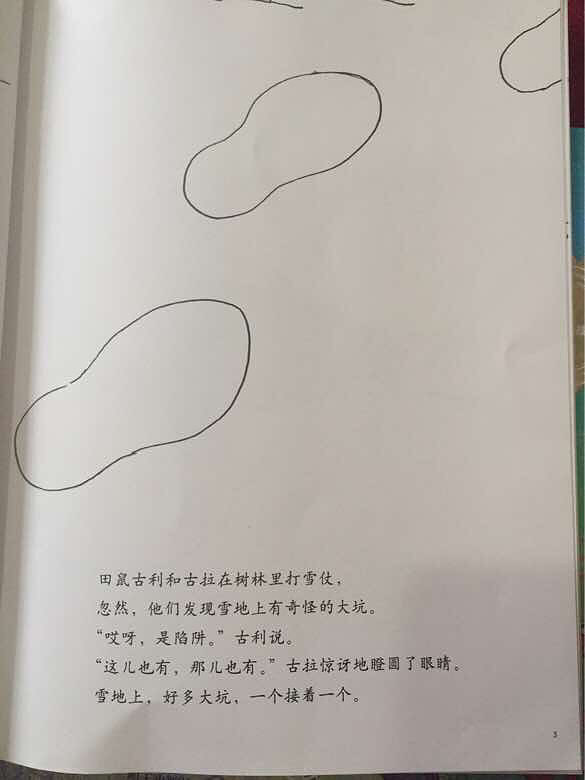 田鼠古利和古拉在树林里打雪仗，
忽然，他们发现雪地上有奇怪的大坑。
“哎呀，是陷阱。”古利说。
“这儿也有，那儿也有。”古拉惊讶地瞪圆了眼睛。
雪地上，好多大坑，一个接着一个。
3